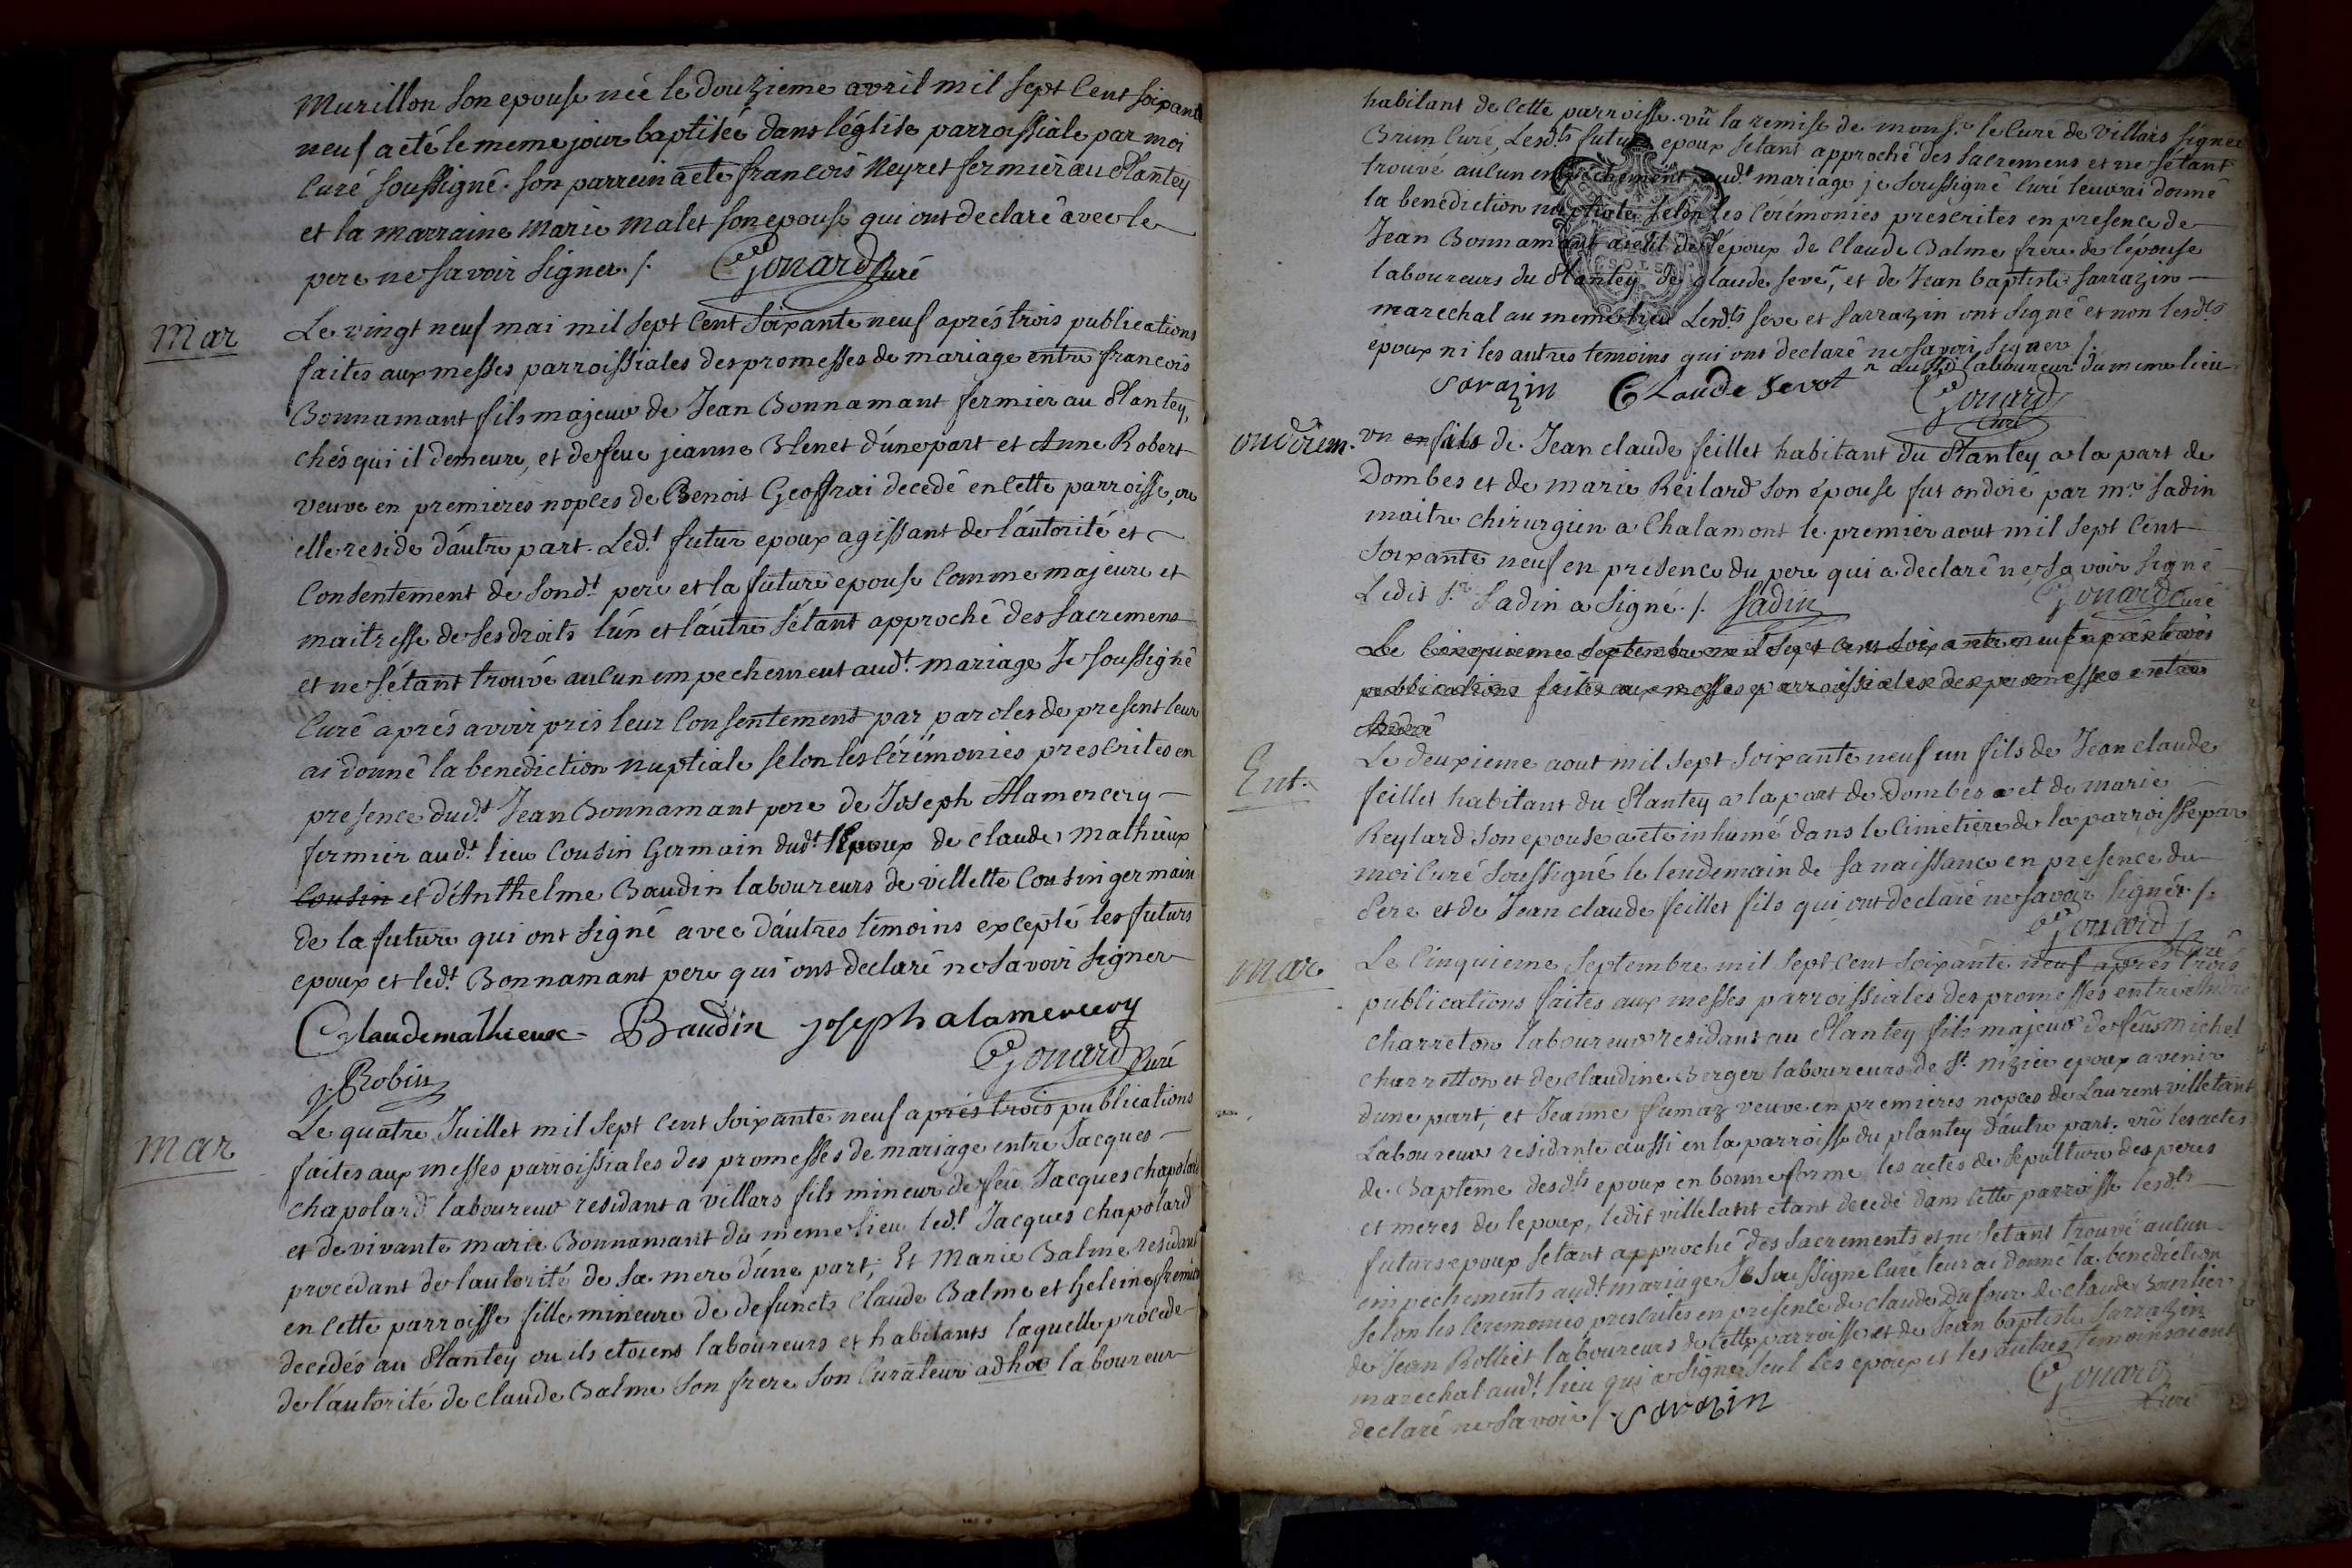 Murillon son epouse née le douzieme avril mil sept cent soixante
neuf a eté le meme jour baptisée dans léglise parroissiale par moi
curé soussigné. son parrein a eté francois Neyret fermier au Plantey
et la marraine marie malet son epouse qui ont declaré avec le
pere ne savoir signer ./. Gonard Curé
Mar
Le vingt neuf mai mil sept cent soixante neuf aprés trois publications
faites aux messes parroissiales des promesses de mariage entre francois
Bonnamant fils majeur de Jean Bonnamant fermier au Plantey,
chés qui il demeure, et de feue jeanne Blenet d'une part et Anne Robert
veuve en premieres noples de Benoit Geoffrai decedé en cette parroisse, ou
elle reside d'autre part. Led.t futur epoux agissant de l'autorité et
consentement de sond.t pere et la future epouse comme majeure et
maitresse de ses droits l'un et l'autre s'étant approché des sacremens
et ne s'étant trouvé aucun empechement aud.t mariage Je soussigné
curé aprés avoir pris leur consentement par paroles de present leur
ai donné la benediction nuptiale selon les cérémonies prescrites en
presence dud.t Jean Bonnamant pere de Joseph Alamercery
fermier aud.t lieu cousin germain dud.t Epoux de claude mathieux
cousin et d'Anthelme Baudin laboureurs de villette cousin germain
de la future qui ont signé avec d'autres temoins excepté les futurs
epoux et led.t Bonnamant pere qui ont declaré ne savoir signer
Claude mathieux Baudin joseph alamercery
Gonard Curé
j. Robin
Mar
Le quatre Juillet mil sept cent soixante neuf aprés trois publications
faites aux messes parroissiales des promesses de mariage entre Jacques
chapolard laboureur residant a villars fils mineur de feu Jacques chapolard
et de vivante marie Bonnamant du meme lieu led.t Jacques chapolard
procedant de l'autorité de sa mere d'une part; Et Marie Balme residant
en cette parroisse fille mineure de defuncts claude Balme et heleine
decedés au Plantey ou ils etoiens laboureurs et habitants laquelle procede
de l'autorité de claude Balme son frere son curateur ad hoc laboureur
habitant de cette parroisse. vû la remise de mons.r le curé de villars signée
Brun curé, Lesd.ts futurs epoux s'etant approché des sacremens et ne s'étant
trouvé aucun empechement aud.t mariage je soussigné curé leur ai donné
la benediction nuptiale selon les cérémonies prescrites en presence de
Jean Bonnamant aieul de l'époux de claude Balme frere de l'épouse
laboureurs du Plantey de claude seve, et de Jean baptiste sarrazin
marechal au meme lieu Lesd.ts seve et sarrazin ont signé et non lesd.ts
epoux ni les autres temoins qui ont declaré ne savoir signer ./.
aussi laboureur du meme lieu
sarazin Claude Sevot Gonard
Curé
ondoiem.
un en fils de Jean claude feillet habitant du Plantey a la part de
Dombes et de marie Reilard son épouse fut ondoié par m.re sadin
maitre chirurgien a Chalamont le premier aout mil sept cent
soixante neuf en presence du pere qui a declaré ne savoir signé
Ledit s.r Sadin a signé ./. Sadin Gonard Curé
Le cinquieme septembre mil sept cent soixante neuf aprés trois
publications faites aux messes parroissiales des promesses entre
André
Ent.
Le deuxieme aout mil sept soixante neuf un fils de Jean claude
feillet habitant du Plantey a la part de Dombes et de marie
Reylard son epouse a eté inhumé dans le cimetiere de la parroisse par
moi curé soussigné le lendemain de sa naissance en presence du
Pere et de Jean claude feillet fils qui ont declaré ne savoir signér ./.
Gonard
Curé
Mar
Le cinquieme septembre mil sept cent soixante neuf aprés trois
publications faites aux messes parroissiales des promesses entre André
charreton laboureur residant au Plantey fils majeur de feus michel
charretton et de claudine Berger laboureurs de S.t nizier epoux avenir
d'une part, et Jeanne fumaz veuve en premieres noples de Laurent villetant
Laboureur residante aussi en la parroisse du plantey d'autre part. vû les actes
de Bapteme desd.ts epoux en bonne forme les actes de sepulture des peres
et meres de lepoux, ledit villetant etant decedé dans cette parroisse lesd.ts
futurs epoux s'etant approché des sacrements et ne s'etant trouvé aucun
empechements aud.t mariage Je soussigné curé leur ai donné la benediction
selon les ceremonies prescrites en presence de claude Dufour de claude Bourlier
de Jean Rolliet laboureurs de cette parroisse et de Jean baptiste sarrazin
marechal aud.t lieu qui a signé seul Les epoux et les autres temoins aient
declaré ne savoir ./. sarazin Gonard
Curé